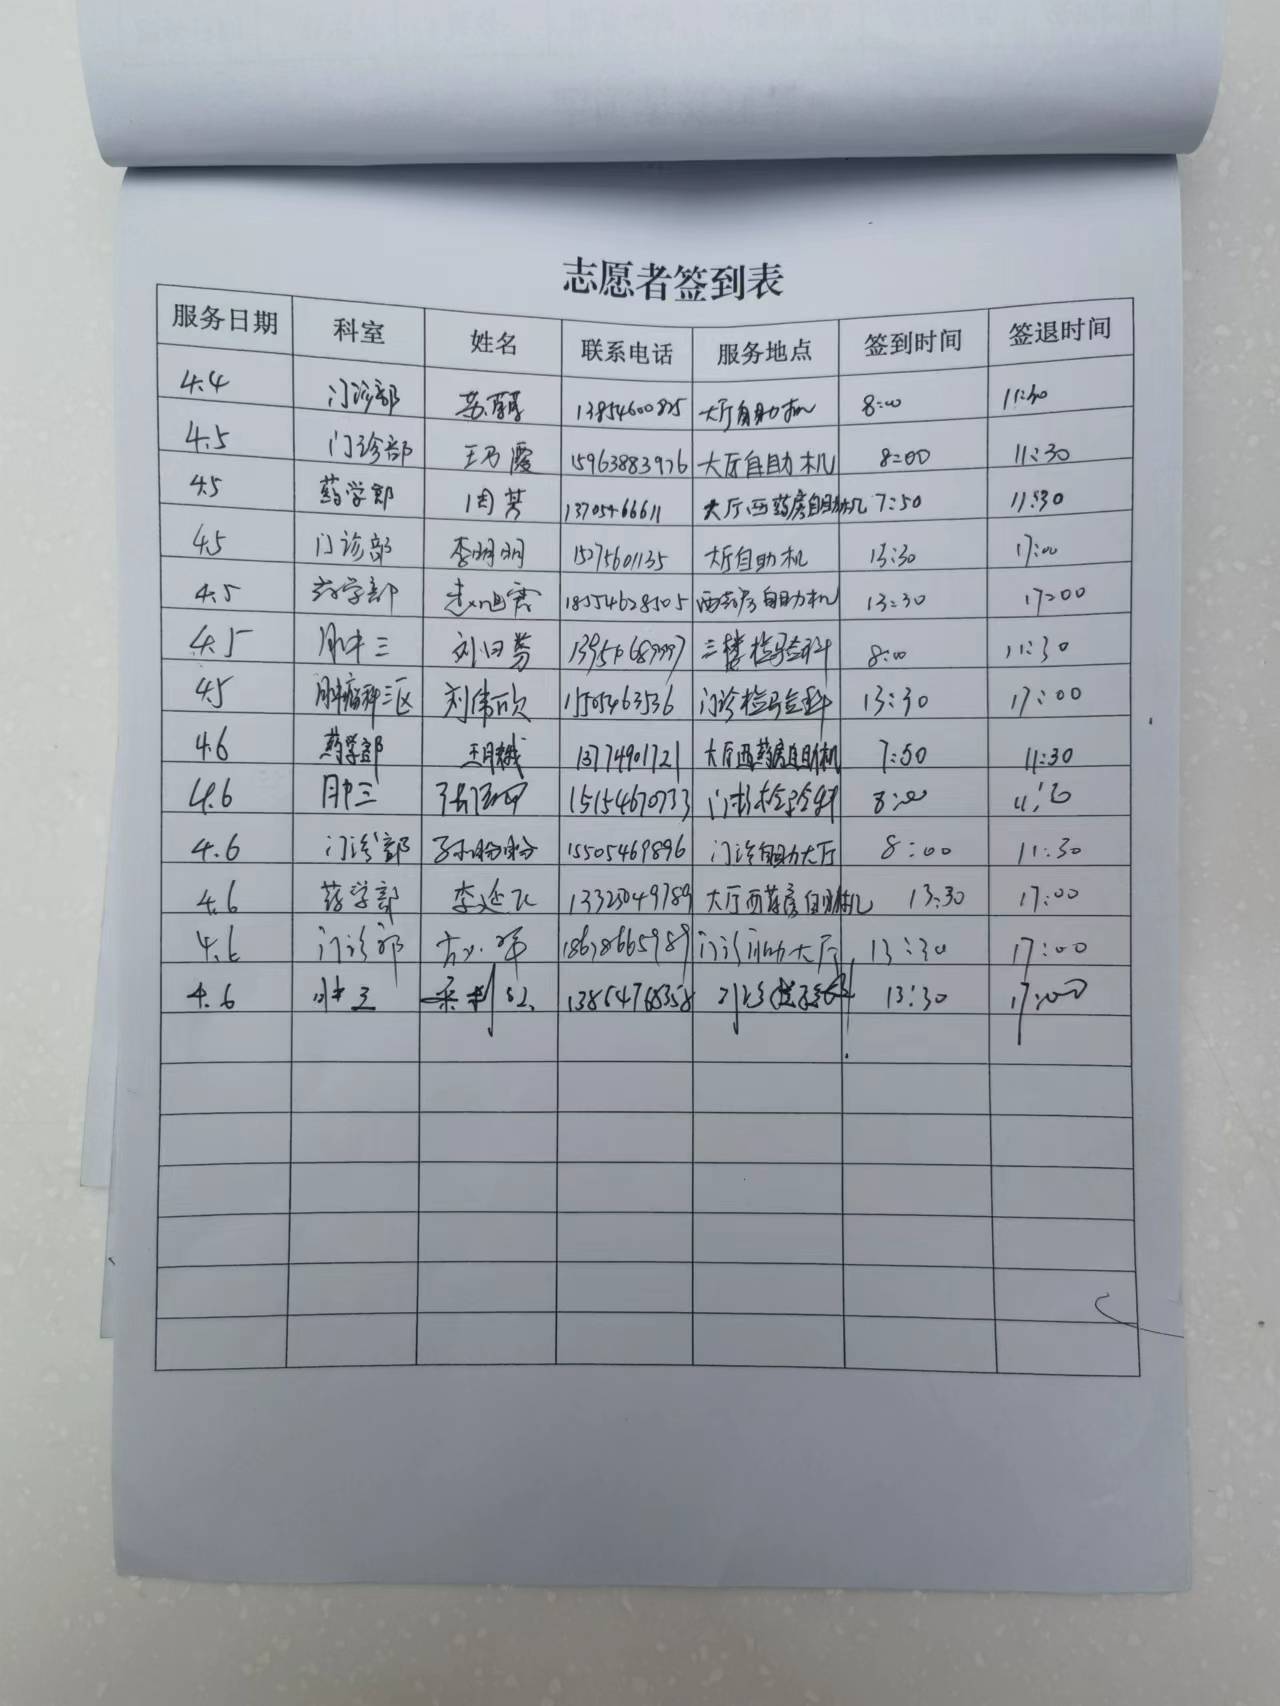 志愿者签到表
服务日期 科室 姓名 联系电话 服务地点 签到时间 签退时间
4.4 门诊部 13854600825 大厅自助机 8:00 11:30
4.5 门诊部 王乃霞 15963883976 大厅自助机 8:00 11:30
4.5 药学部 周芳 13705466611 大厅西药房自助机 7:50 11:30
4.5 门诊部 李明明 15075601135 大厅自助机 13:30 17:00
4.5 药学部 18554628505 西药房自助机 13:30 17:00
4.5 肿三 三楼检验科 8:00 11:30
4.5 肿瘤科三区 刘伟欣 15505463536 门诊检验科 13:30 17:00
4.6 药学部 13774901721 大厅西药房自助机 7:50 11:30
4.6 肿三 15154670733 门诊检验科 8:00
4.6 门诊部 孙盼盼 15505469896 门诊自助大厅 8:00 11:30
4.6 药学部 李延飞 大厅西药房自助机 13:30 17:00
4.6 门诊部 18678665989 13:30 17:00
4.6 肿三 13:30 17:00